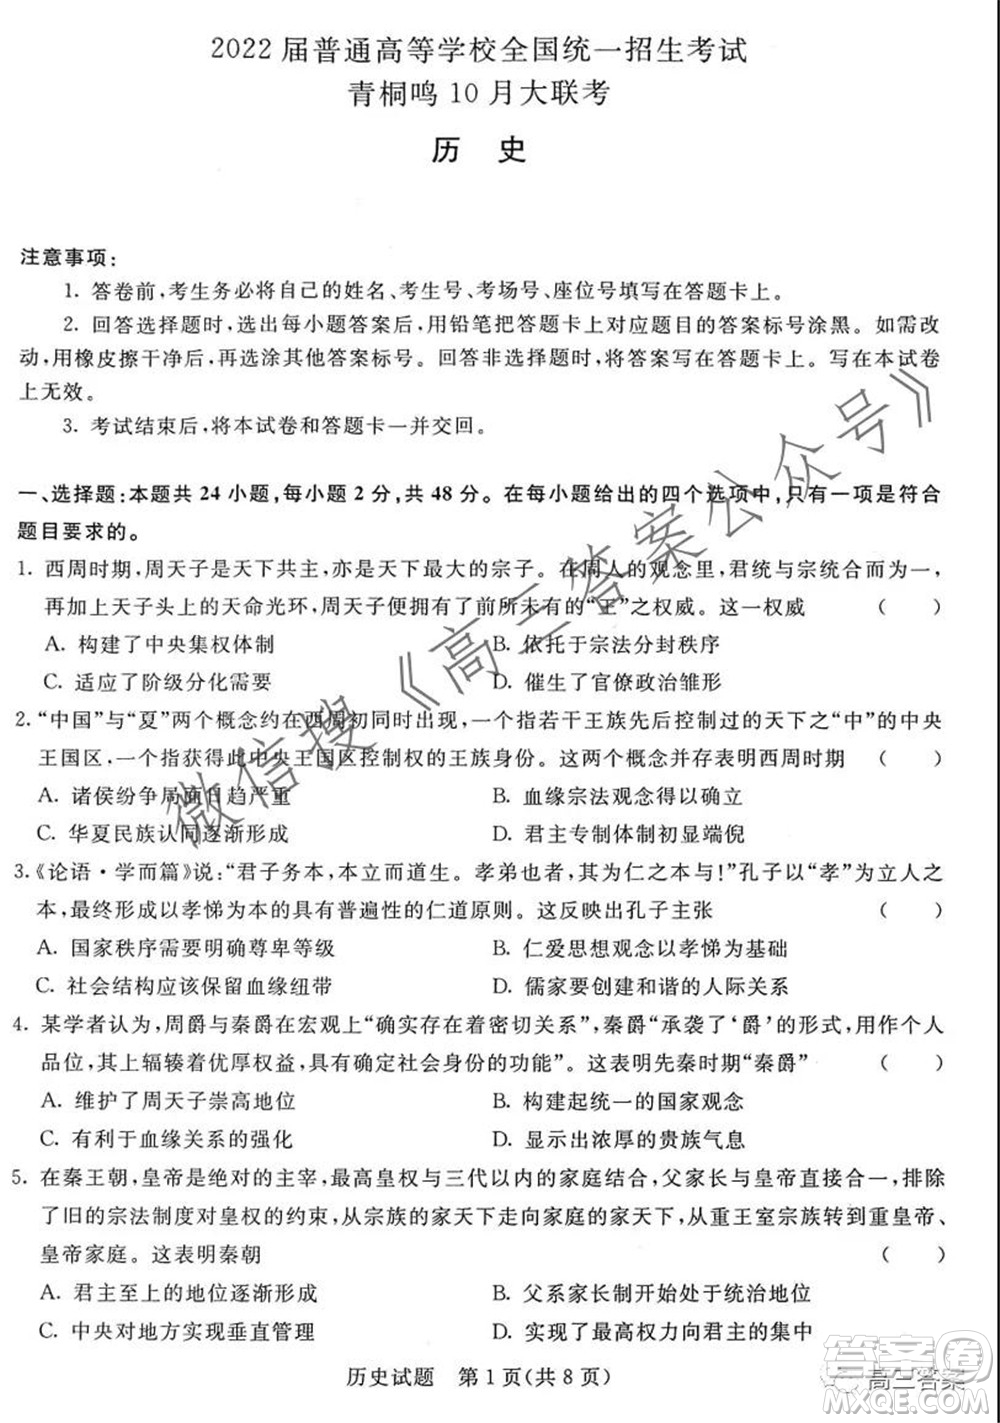 2022 届普通高等学校全国统一招生考试
青桐鸣 10 月大联考
历 史
注意事项：
1. 答卷前，考生务必将自己的姓名、考生号、考场号、座位号填写在答题卡上。
2. 回答选择题时，选出每小题答案后，用铅笔把答题卡上对应题目的答案标号涂黑。如需改
动，用橡皮擦干净后，再选涂其他答案标号。回答非选择题时，将答案写在答题卡上。写在本试卷
上无效。
3. 考试结束后，将本试卷和答题卡一并交回。
一、选择题：本题共 24 小题，每小题 2 分，共 48 分。在每小题给出的四个选项中，只有一项是符合
题目要求的。
1. 西周时期，周天子是天下共主，亦是天下最大的宗子。在周人的观念里，君统与宗统合而为一，
再加上天子头上的天命光环，周天子便拥有了前所未有的“王”之权威。这一权威 （ ）
A. 构建了中央集权体制 B. 依托于宗法分封秩序
C. 适应了阶级分化需要 D. 催生了官僚政治雏形
2. “中国”与“夏”两个概念约在西周初同时出现，一个指若干王族先后控制过的天下之“中”的中央
王国区，一个指获得此中央王国区控制权的王族身份。这两个概念并存表明西周时期 （ ）
A. 诸侯纷争局面日趋严重 B. 血缘宗法观念得以体现
C. 华夏民族认同逐渐形成 D. 君主专制体制初显端倪
3. 《论语·学而篇》说：“君子务本，本立而道生。孝弟也者，其为仁之本与！”孔子以“孝”为立人之
本，最终形成以孝悌为本的具有普遍性的仁道原则。这反映出孔子主张 （ ）
A. 国家秩序需要明确尊卑等级 B. 仁爱思想观念以孝悌为基础
C. 社会结构应该保留血缘纽带 D. 儒家应创建和谐的人际关系
4. 某学者认为，周爵与秦爵在宏观上“确实存在着密切关系”，秦爵“承袭了‘爵’的形式，用作个人
品位，其上辐辏着优厚权益，具有确定社会身份的功能”。这表明先秦时期“秦爵” （ ）
A. 维护了周天子崇高地位 B. 构建起统一的国家观念
C. 有利于血缘关系的强化 D. 显示出浓厚的贵族气息
5. 在秦王朝，皇帝是绝对的主宰，最高皇权与三代以内的家庭结合，父家长与皇帝直接合一，排除
了旧的宗法制度对皇权的约束，从宗族的家天下走向家庭的家天下，从重王室宗族转到重皇帝、
皇帝家庭。这表明秦朝 （ ）
A. 君主至上的地位逐渐形成 B. 父系家长制开始处于统治地位
C. 中央对地方实现垂直管理 D. 实现了最高权力向君主的集中
历史试题 第 1 页（共 8 页）
微信搜《高三答案公众号》
答案卷
MXQE.COM
高三答案